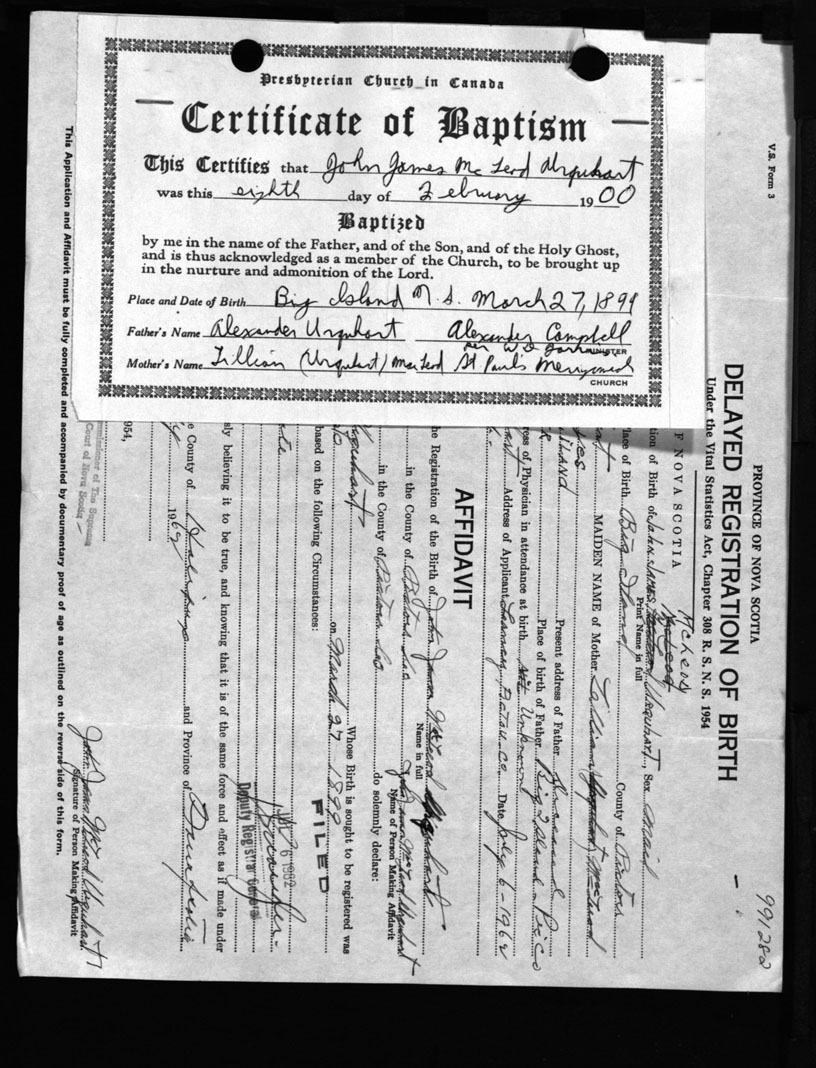 Presbyterian Church in Canada
Certificate of Baptism
This Certifies that John James Mc Leod Urquhart
was this eighth day of February 1900
Baptized
by me in the name of the Father, and of the Son, and of the Holy Ghost,
and is thus acknowledged as a member of the Church, to be brought up
in the nurture and admonition of the Lord.
Place and Date of Birth Big Island N. S. March 27, 1899
Father's Name Alexander Urquhart Alexander Campbell
per W D
MINISTER
Mother's Name Lillian (Urquhart) MacLeod St Paul's Merigomish
CHURCH
V.S. Form 3
99,282
PROVINCE OF NOVA SCOTIA
DELAYED REGISTRATION OF BIRTH
Under the Vital Statistics Act, Chapter 308 R. S. N. S. 1954
F NOVA SCOTIA
McLeod
tion of Birth of John James Urquhart, Sex Male
Print Name in full
lace of Birth Big Island County of Pictou
MAIDEN NAME of Mother Lillian
Present address of Father Deceased
Place of birth of Father Big Island Pic Co
ress of Physician in attendance at birth. Unknown
Address of Applicant Pictou Co. Date July 6 - 1962
AFFIDAVIT
he Registration of the Birth of John James McLeod Urquhart
Name in full
in the County of Pictou Co John James McLeod Urquhart
Name of Person Making Affidavit
in the County of Pictou Co do solemnly declare:
Urquhart Whose Birth is sought to be registered was
on March 27 1899
based on the following Circumstances:
FILED
6 1962
Deputy Registrar General
sly believing it to be true, and knowing that it is of the same force and effect as if made under
e County of Halifax and Province of Nova Scotia
1962
954,
mmissioner of The Supreme
Court of Nova Scotia
John James McLeod Urquhart
Signature of Person Making Affidavit
This Application and Affidavit must be fully completed and accompanied by documentary proof of age as outlined on the reverse side of this form.